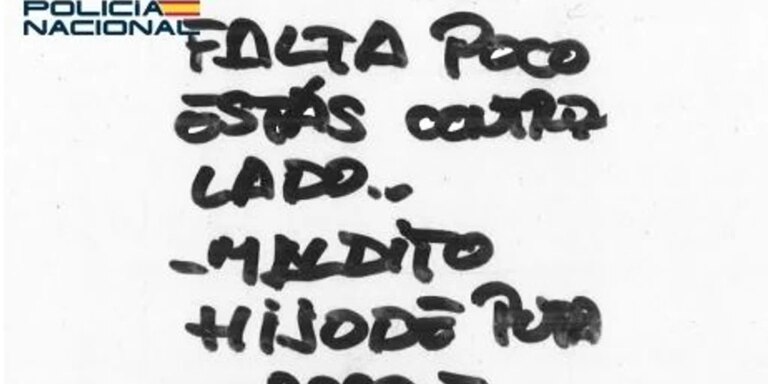 POLICÍA
NACIONAL
FALTA POCO
ESTÁS CONTRO
LADO..
-MALDITO
HIJO DE PUTA